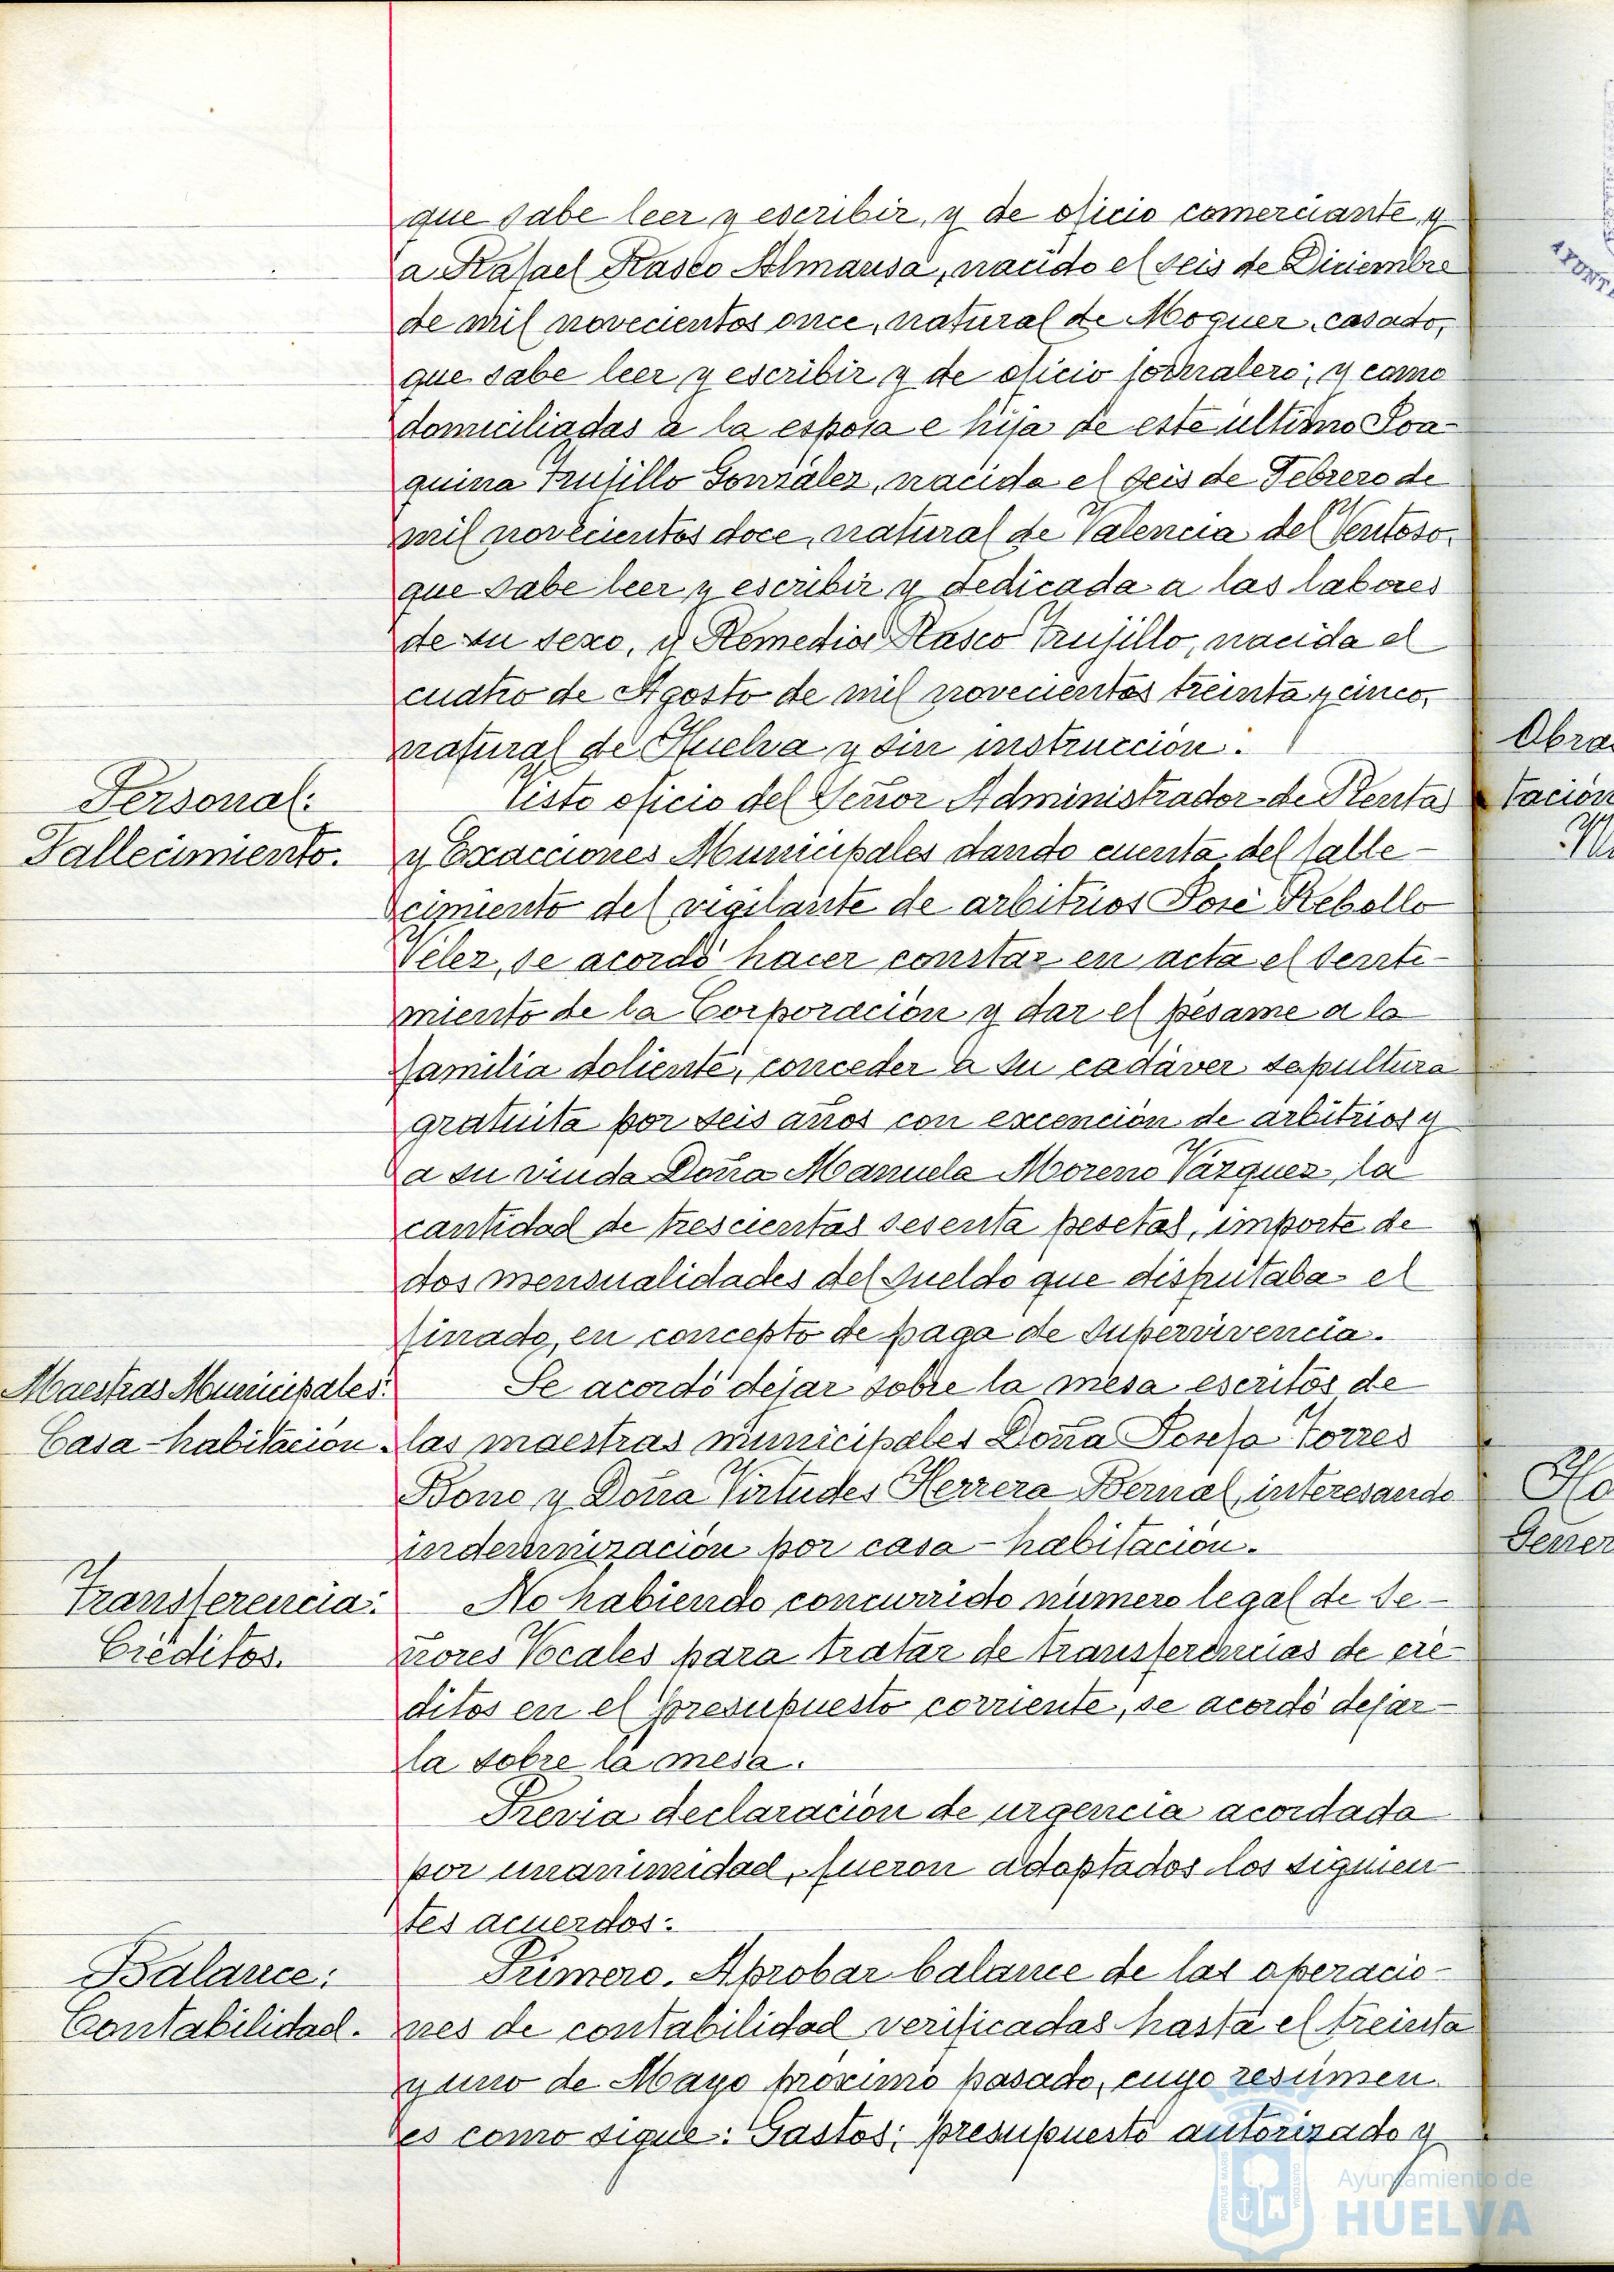 que sabe leer y escribir, y de oficio comerciante, y
a Rafael Rasco Almansa, nacido el seis de Diciembre
de mil novecientos once, natural de Moguer, casado,
que sabe leer y escribir y de oficio jornalero; y como
domiciliadas a la esposa e hija de este último Joa-
quina Trujillo González, nacida el seis de Febrero de
mil novecientos doce, natural de Valencia del Ventoso,
que sabe leer y escribir y dedicada a las labores
de su sexo, y Remedios Rasco Trujillo, nacida el
cuatro de Agosto de mil novecientos treinta y cinco,
natural de Huelva y sin instrucción.
Personal:
Fallecimiento.
Visto oficio del Señor Administrador de Rentas
y Exacciones Municipales dando cuenta del falle-
cimiento del vigilante de arbitrios José Rebollo
Vélez, se acordó hacer constar en acta el senti-
miento de la Corporación y dar el pésame a la
familia doliente, conceder a su cadáver sepultura
gratuita por seis años con excención de arbitrios y
a su viuda Doña Manuela Moreno Vázquez, la
cantidad de trescientas sesenta pesetas, importe de
dos mensualidades del sueldo que disfrutaba el
finado, en concepto de paga de supervivencia.
Maestras Municipales:
Casa-habitación.
Se acordó dejar sobre la mesa escritos de
las maestras municipales Doña Josefa Torres
Bono y Doña Virtudes Herrera Bernal, interesando
indemnización por casa-habitación.
Transferencia:
Créditos.
No habiendo concurrido número legal de Se-
ñores Vocales para tratar de transferencias de cré-
ditos en el presupuesto corriente, se acordó dejar-
la sobre la mesa.
Previa declaración de urgencia acordada
por unanimidad, fueron adoptados los siguien-
tes acuerdos:
Balance:
Contabilidad.
Primero. Aprobar balance de las operacio-
nes de contabilidad verificadas hasta el treinta
y uno de Mayo próximo pasado, cuyo resúmen
es como sigue: Gastos; presupuesto autorizado y
Obra
tación
Ho
Gener
Ayuntamiento de
HUELVA